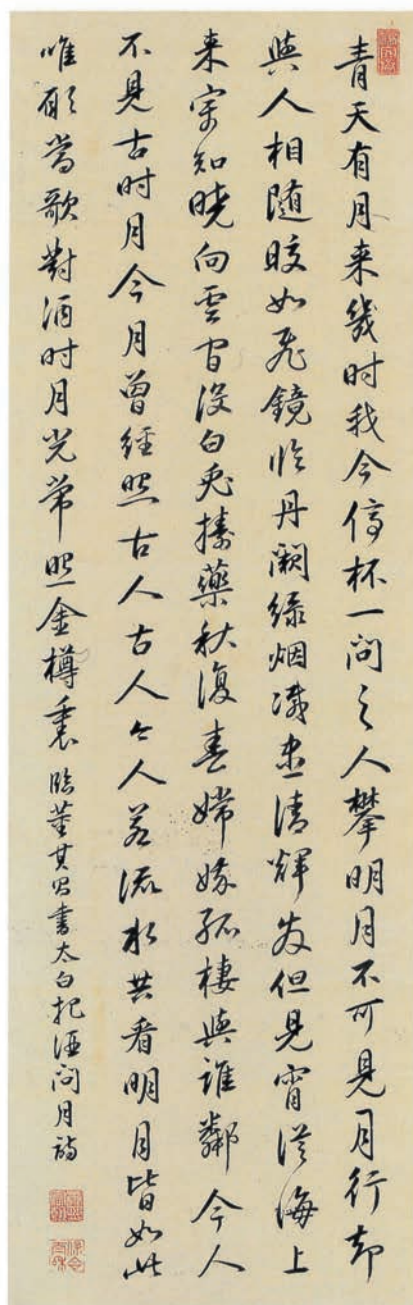 青天有月来幾时我今停杯一问之人攀明月不可見月行却
與人相随皎如飛鏡臨丹阙绿烟滅盡清輝发但見宵從海上
来寧知曉向雲間没白兔擣藥秋復春嫦娥孤棲與誰鄰今人
不見古时月今月曾經照古人古人今人若流水共看明月皆如此
唯願當歌對酒时月光常照金樽裏 臨董其昌書太白把酒问月詩